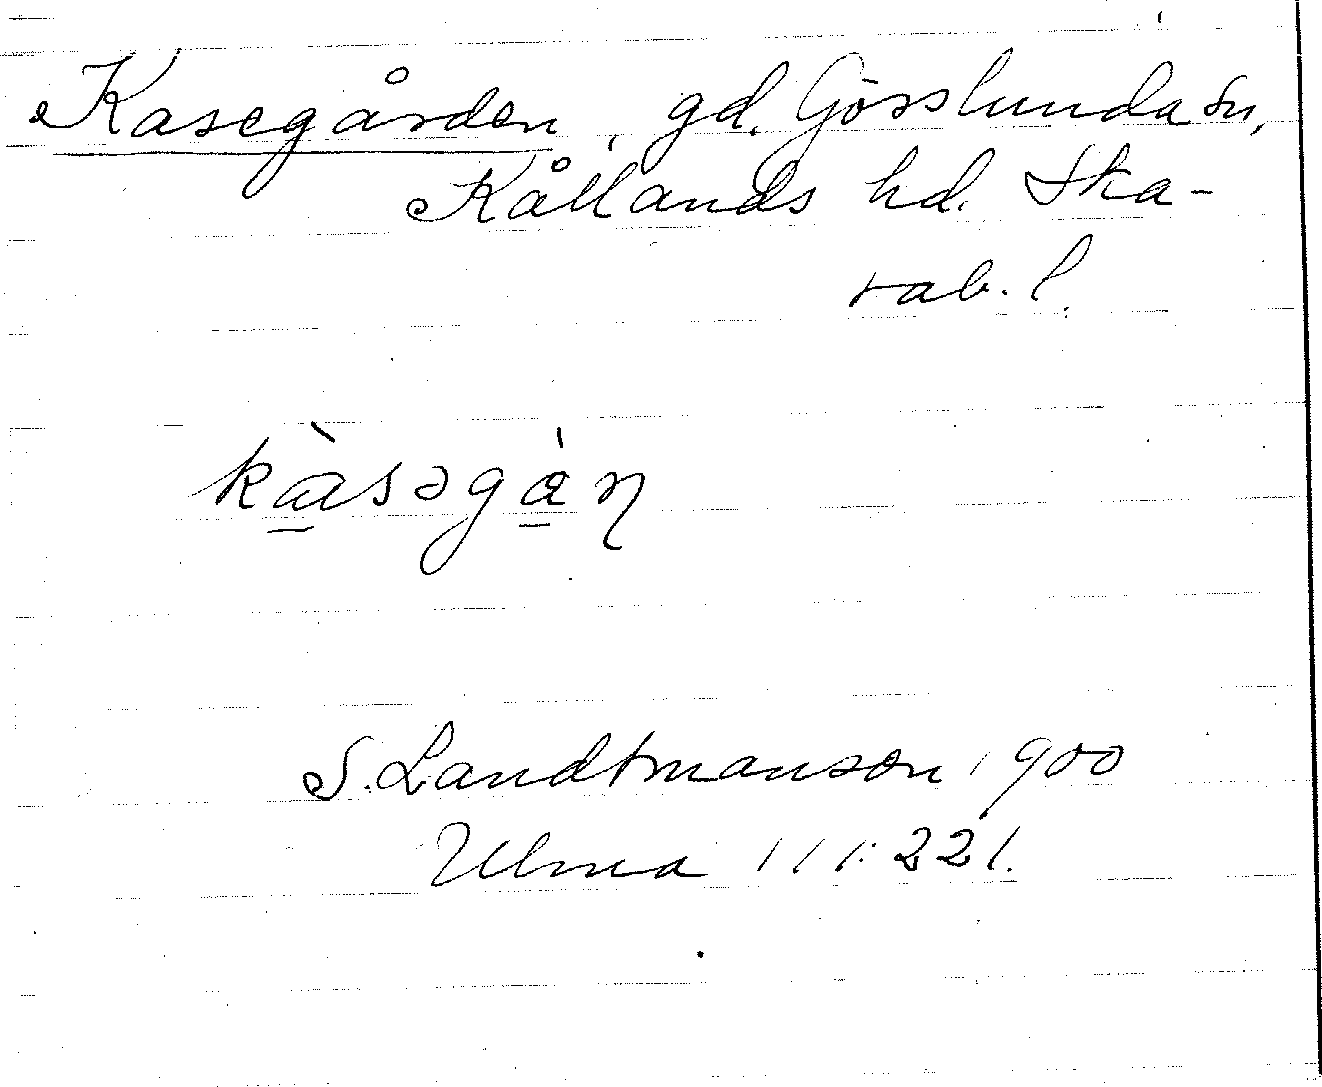 Kasegården, gd. Gösslunda sn,
Kållands hd. Ska-
rab. l.
kàsəgàn̩
S. Landtmanson 1900
Ulma 111:221.